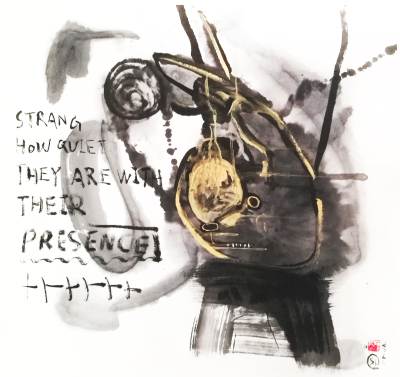 STRANG
HOW QUIET
THEY ARE WITH
THEIR
PRESENCE